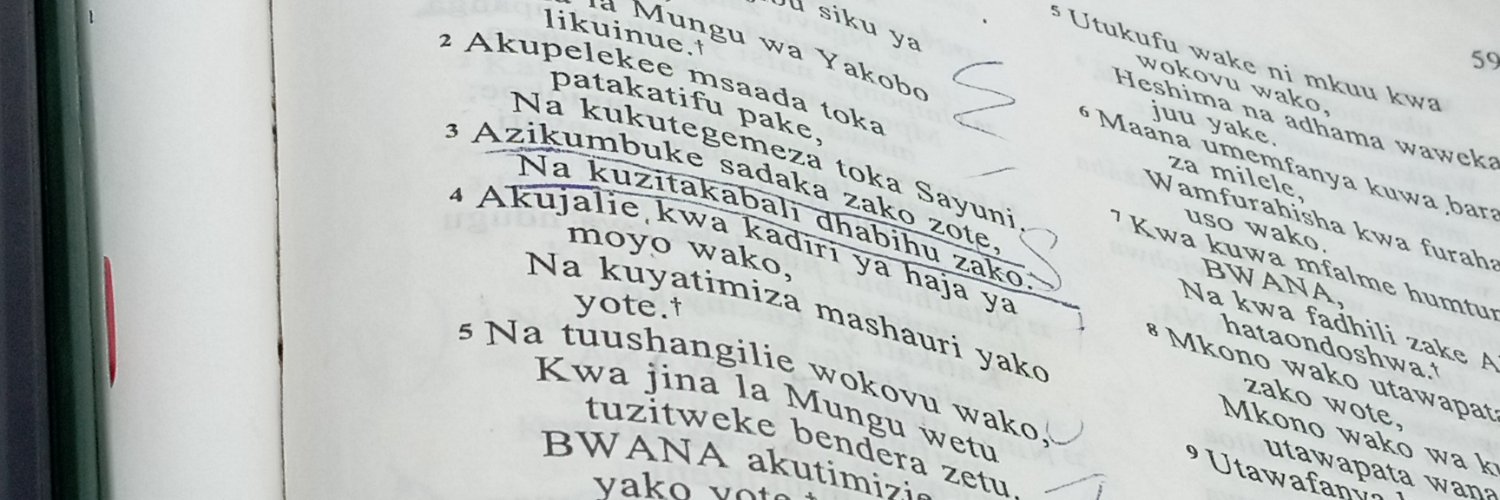 siku ya
la Mungu wa Yakobo
likuinue.†
2 Akupelekee msaada toka
patakatifu pake,
Na kukutegemeza toka Sayuni.
3 Azikumbuke sadaka zako zote,
Na kuzitakabali dhabihu zako.
4 Akujalie kwa kadiri ya haja ya
moyo wako,
Na kuyatimiza mashauri yako
yote.†
5 Na tuushangilie wokovu wako,
Kwa jina la Mungu wetu
tuzitweke bendera zetu.
BWANA akutimizie
yako yote.†
59
5 Utukufu wake ni mkuu kwa
wokovu wako,
Heshima na adhama waweka
juu yake.
6 Maana umemfanya kuwa bara
za milele,
Wamfurahisha kwa furaha
uso wako.
7 Kwa kuwa mfalme humtum
BWANA,
Na kwa fadhili zake A
hataondoshwa.†
8 Mkono wako utawapata
zako wote,
Mkono wako wa ku
utawapata wana
9 Utawafanya